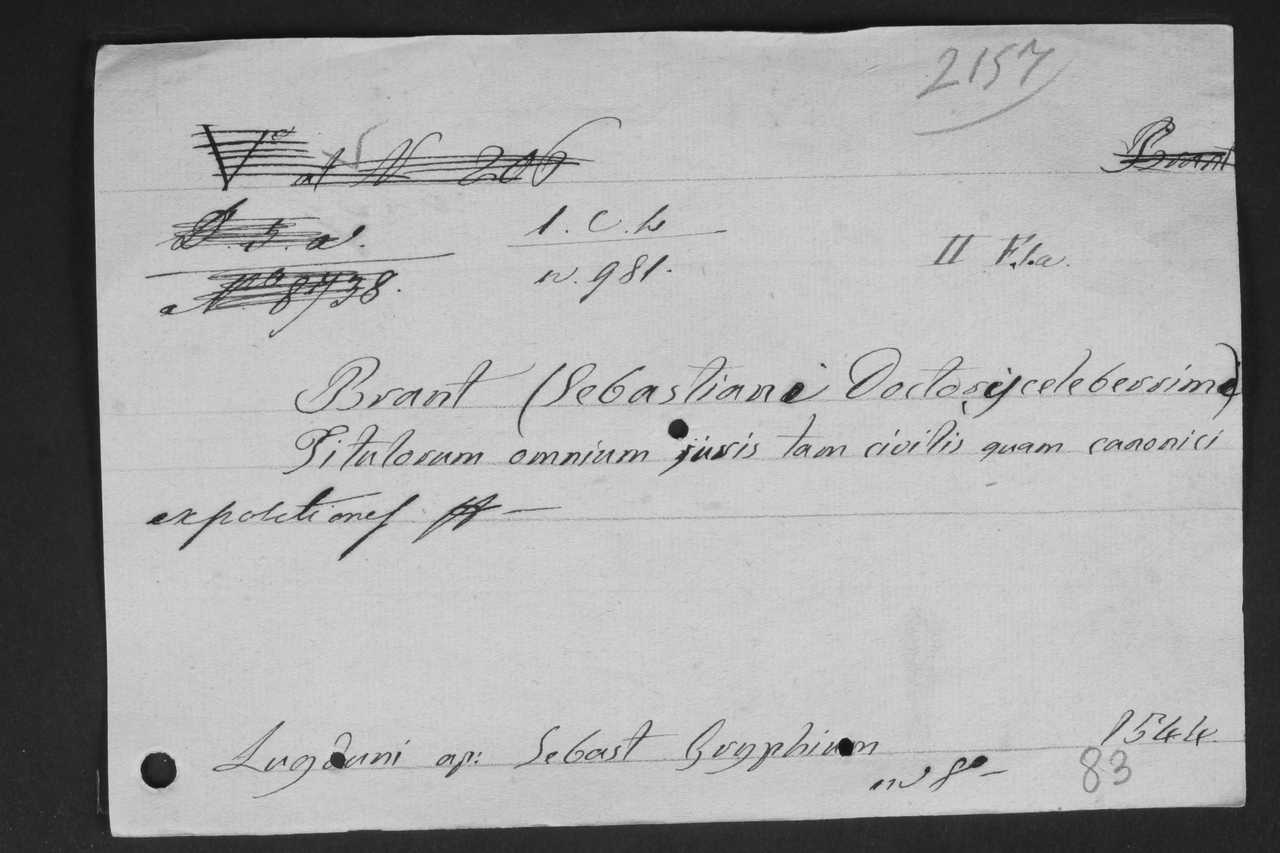 2157
V° at N 206
Brant
D. 5. a.
1. C. h
II F.1.a.
N° 8738.
n. 981.
Brant (Sebastiani Doctoris celeberrimi)
Titulorum omnium juris tam civilis quam canonici
expositiones
Lugduni ap: Sebast Gryphium 1544.
in 8°
83